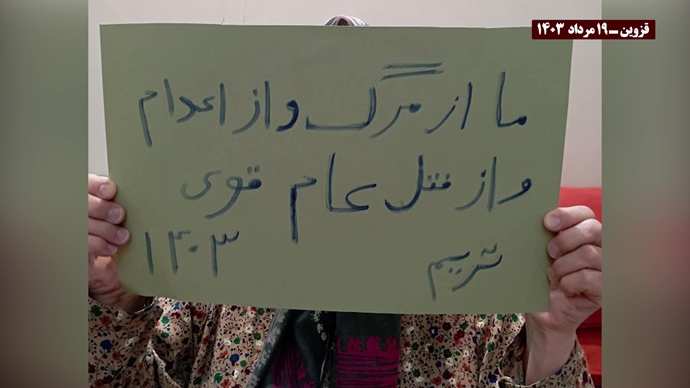 قزوین ــ ۱۹ مرداد ۱۴۰۳
ما از مرگ و از اعدام
و از قتل عام قوی
تریم ۱۴۰۳